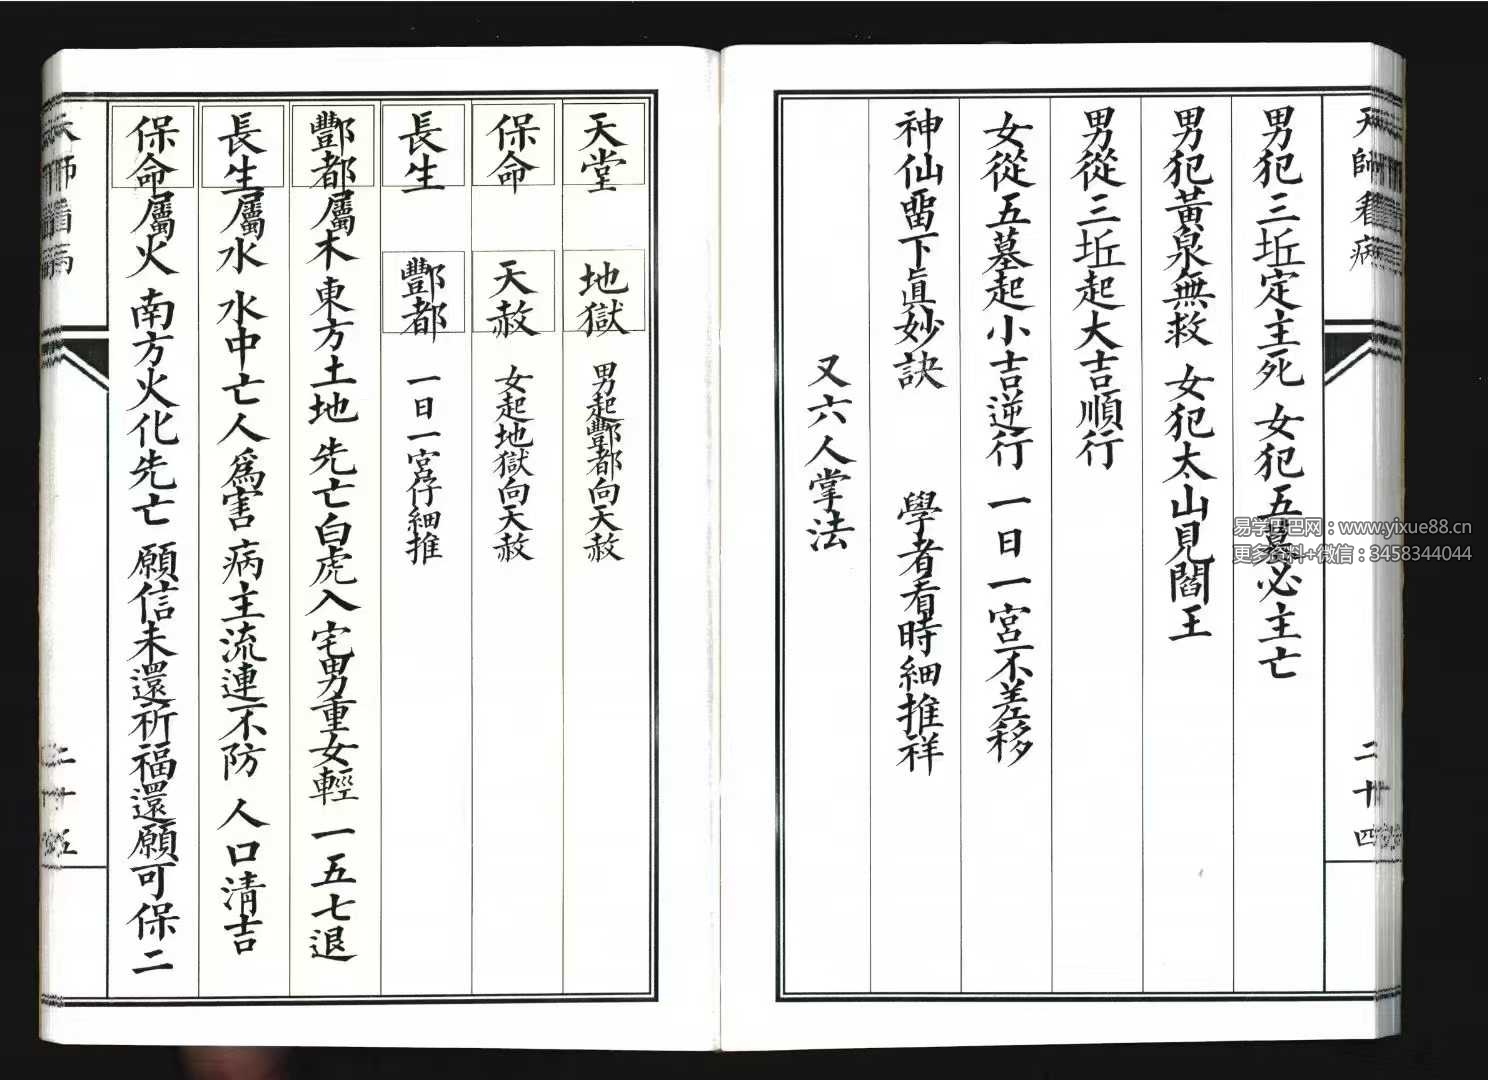 天師看病
二十四
男犯三坵定主死 女犯五墓必主亡
男犯黃泉無救 女犯太山見閻王
男從三坵起大吉順行
女從五墓起小吉逆行 一日一宮不差移
神仙畱下眞妙訣 學者看時細推祥
又六人掌法
天堂 地獄 男起酆都向天赦
保命 天赦 女起地獄向天赦
長生 酆都 一日一宮仔細推
酆都屬木 東方土地 先亡白虎入宅男重女輕 一五七退
長生屬水 水中亡人爲害 病主流連不防 人口清吉
保命屬火 南方火化先亡 願信未還祈福還願可保二
天師看病
二十五
易学巴巴网：www.yixue88.cn
更多资料+微信：3458344044